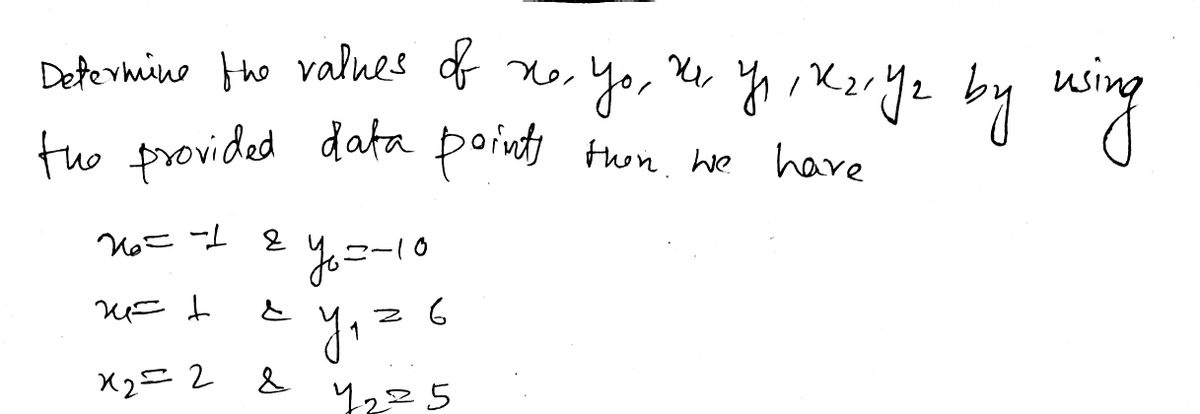 Determine the values of x₀, y₀, x₁, y₁, x₂, y₂ by using
the provided data points then we have
x₀ = -1 & y₀ = -10
x₁ = 1 & y₁ = 6
x₂ = 2 & y₂ = 5